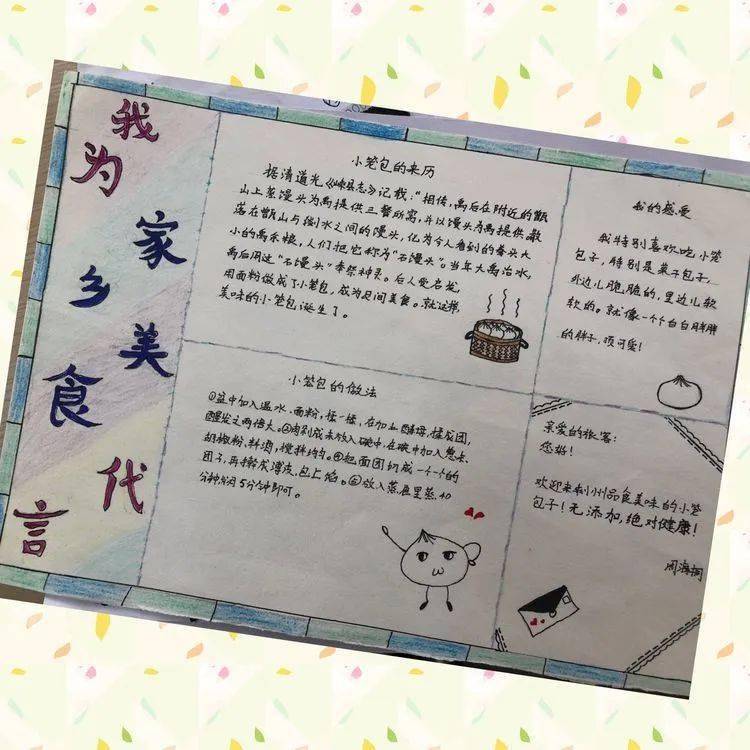 我为家乡美食代言
小笼包的来历
据清道光《嵊县志》记载："相传,禹后在附近的甑
山上蒸馒头为禹提供三餐所需,并以馒头为禹提供散
落在甑山与剡水之间的馒头,化为今人看到的拳头大
小的禹余粮,人们把它称为"石馒头"。当年大禹治水,
禹后用这"石馒头"奉祭神灵。后人受启发,
用面粉做成了小笼包,成为民间美食。就这样,
美味的小笼包诞生了。
小笼包的做法
①盆中加入温水、面粉,揉一揉,在加上酵母,揉成团,
醒发之两倍大。②肉剁成末放入碗中,在碗中加入葱末、
胡椒粉、料酒,搅拌均匀。④把面团切成一个一个的
团子,再擀成薄皮,包上馅。⑤放入蒸屉里蒸,10
分钟后5分钟即可。
我的感受
我特别喜欢吃小笼
包子,特别是菜干包子,
外边儿脆脆的,里边儿软
软的。就像一个个白白胖胖
的胖子,顶可爱!
亲爱的旅客:
您好!
欢迎来剡州品食美味的小笼
包子!无添加,绝对健康!
周海桐